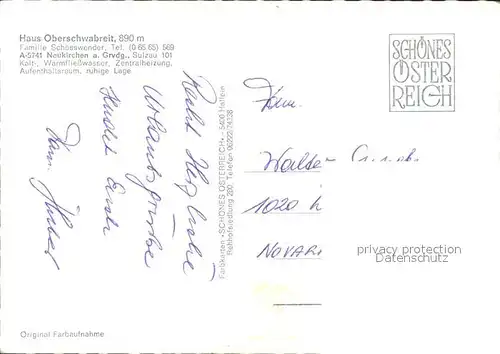 Haus Oberschwabreit, 890 m
Familie Schösswender, Tel. (0 65 65) 569
A-5741 Neukirchen a. Grvdg., Sulzau 101
Kalt-, Warmfließwasser, Zentralheizung,
Aufenthaltsraum, ruhige Lage
SCHÖNES
ÖSTER
REICH
Recht Herzliche
Urlaubsgrüße
sendet Euch
Fam. Huber
Farbkarten «SCHÖNES ÖSTERREICH» · 5400 Hallein
Rehhofsiedlung 200, Telefon
Fam.
1020
privacy protection
DANUBEARDS.COM
Original Farbaufnahme